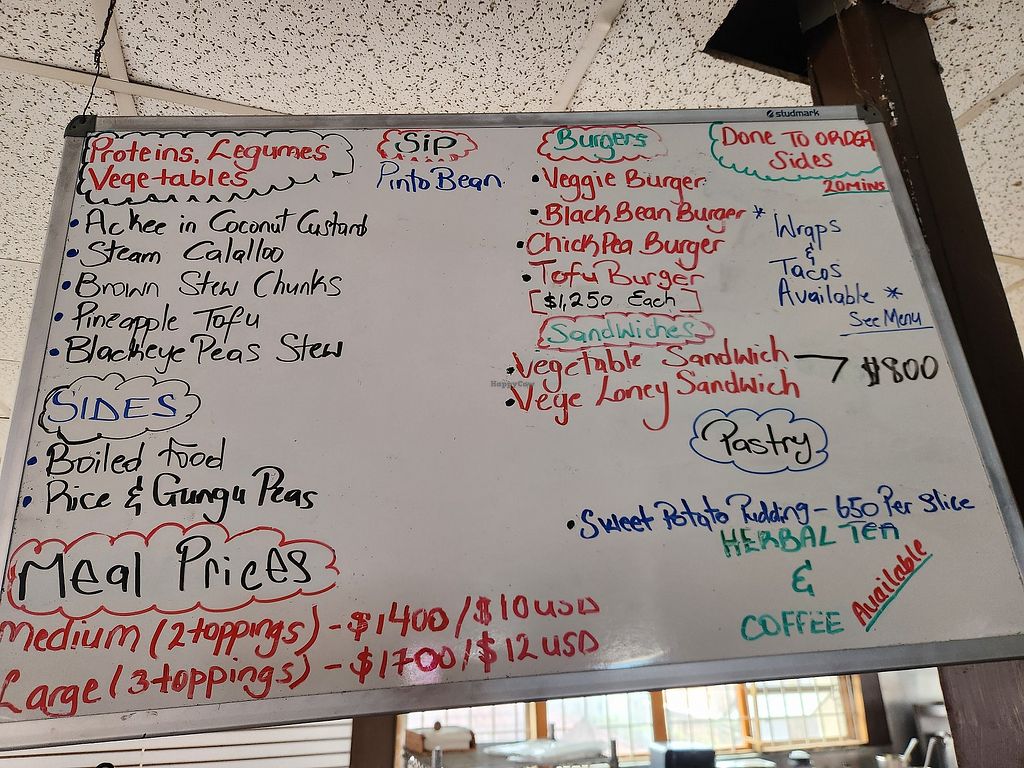 studmark
Proteins, Legumes
Vegetables
• Ackee in Coconut Custard
• Steam Calalloo
• Brown Stew Chunks
• Pineapple Tofu
• Blackeye Peas Stew
SIDES
• Boiled Food
• Rice & Gungu Peas
Meal Prices
Medium (2 toppings) - $1400/$10 USD
Large (3 toppings) - $1700/$12 USD
Sip
Pinto Bean
Burgers
• Veggie Burger
• Black Bean Burger *
• ChickPea Burger
• Tofu Burger
[$1,250 Each]
Sandwiches
• Vegetable Sandwich
• Vege Loney Sandwich
$800
Done To ORDER
Sides
20MINS
Wraps
&
Tacos
Available *
See Menu
Pastry
• Sweet Potato Pudding - 650 Per Slice
HERBAL TEA
&
COFFEE Available
HappyCow